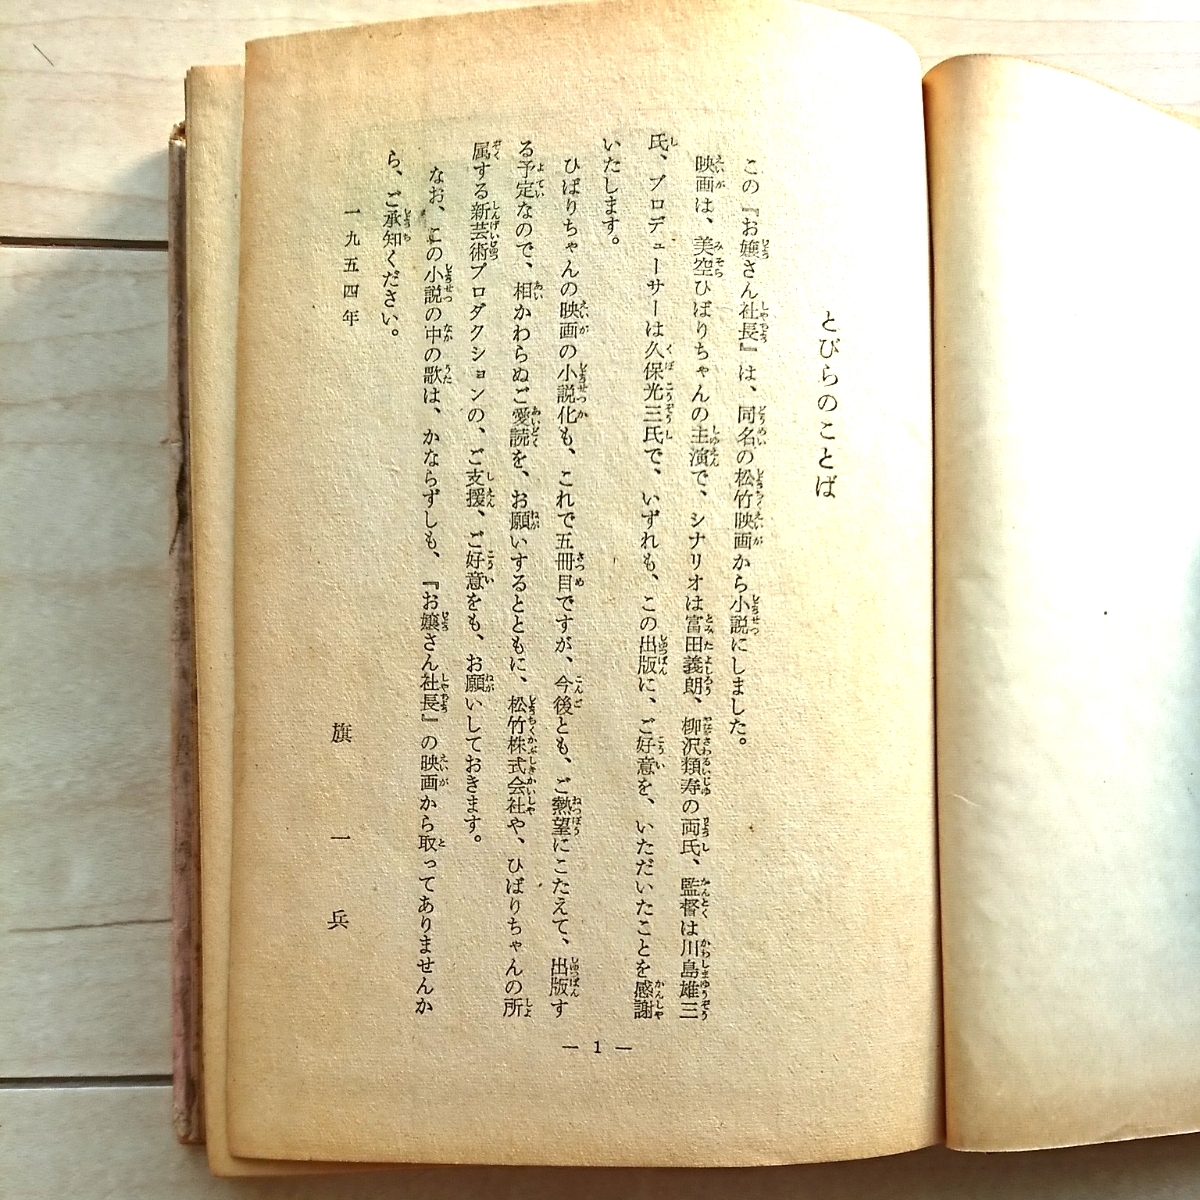 とびらのことば
この『お嬢さん社長』は、同名の松竹映画から小説にしました。
映画は、美空ひばりちゃんの主演で、シナリオは富田義朗、柳沢類寿の両氏、監督は川島雄三
氏、プロデューサーは久保光三氏で、いずれも、この出版に、ご好意を、いただいたことを感謝
いたします。
ひばりちゃんの映画の小説化も、これで五冊目ですが、今後とも、ご熱望にこたえて、出版す
る予定なので、相かわらぬご愛読を、お願いするとともに、松竹株式会社や、ひばりちゃんの所
属する新芸術プロダクションの、ご支援、ご好意をも、お願いしておきます。
なお、この小説の中の歌は、かならずしも、『お嬢さん社長』の映画から取ってありませんか
ら、ご承知ください。
一九五四年
旗一兵
— 1 —